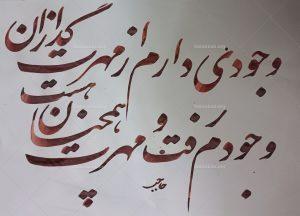 وجودی دارم از مهرت گدازان
وجودم رفت و مهرت همچنان هست